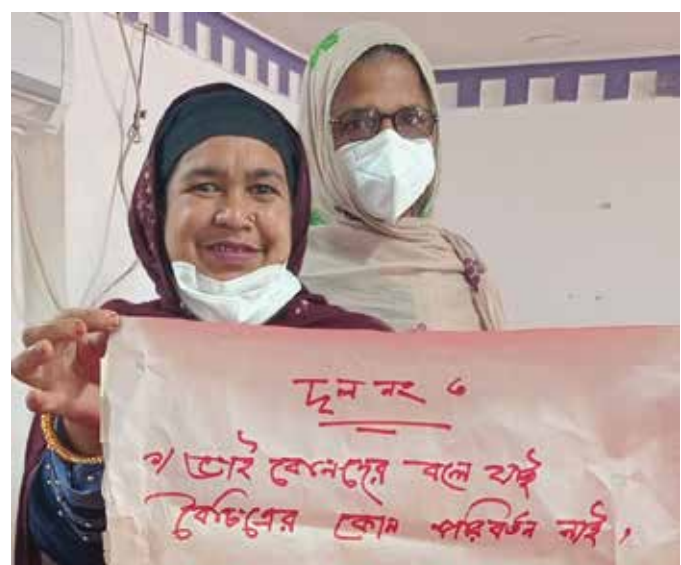 দল নং ৩
১/ ভাই বোনদের বলে যাই
বৈচিত্রের কোন পরিবর্তন নাই,